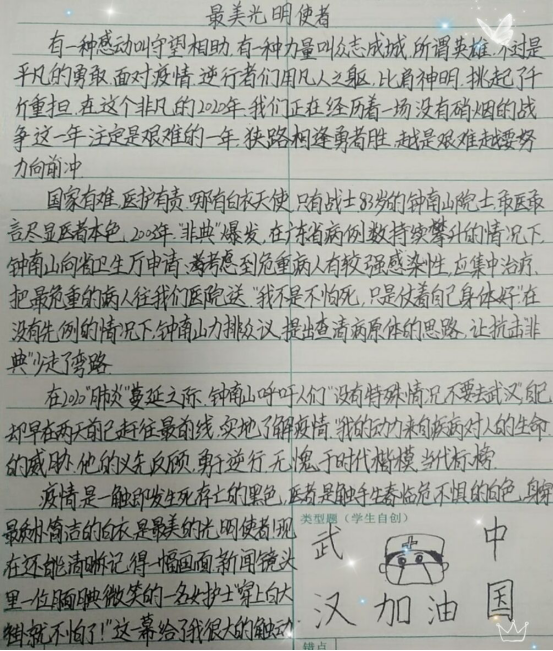 最美光明使者
有一种感动叫守望相助,有一种力量叫众志成城,所谓英雄,不过是
平凡的勇敢,面对疫情,逆行者们用凡人之躯,比肩神明,挑起了千
斤重担,在这个非凡的2020年,我们正在经历着一场没有硝烟的战
争这一年注定是艰难的一年,狭路相逢勇者胜,越是艰难越要努
力向前冲
国家有难,医护有责,哪有白衣天使,只有战士,83岁的钟南山院士敢医敢
言尽显医者本色,2003年,"非典"爆发,在广东省病例数持续攀升的情况下
钟南山向省卫生厅申请:考虑到危重病人有较强感染性,应集中治疗,
把最危重的病人往我们医院送"我不是不怕死,只是仗着自己身体好"在
没有先例的情况下,钟南山力排众议,提出查清病原体的思路,让抗击"非
典"少走了弯路
在2020"肺炎"蔓延之际,钟南山呼吁人们"没有特殊情况,不要去武汉"自己
却早在两天前已赶往最前线,实地了解疫情,"我的动力来自疾病对人的生命
的威胁,他的义无反顾,勇于逆行,无愧于时代楷模,当代标榜
疫情是一触即发生死存亡的黑色,医者是触手生春临危不惧的白色,身穿
最质朴简洁的白衣是最美的光明使者!现
在还能清晰记得一幅画面,新闻镜头
里一位腼腆微笑的一名女护士"穿上白大
褂就不怕了!"这一幕给了我很大的触动
类型题(学生自创)
武 中
汉加油国
错点